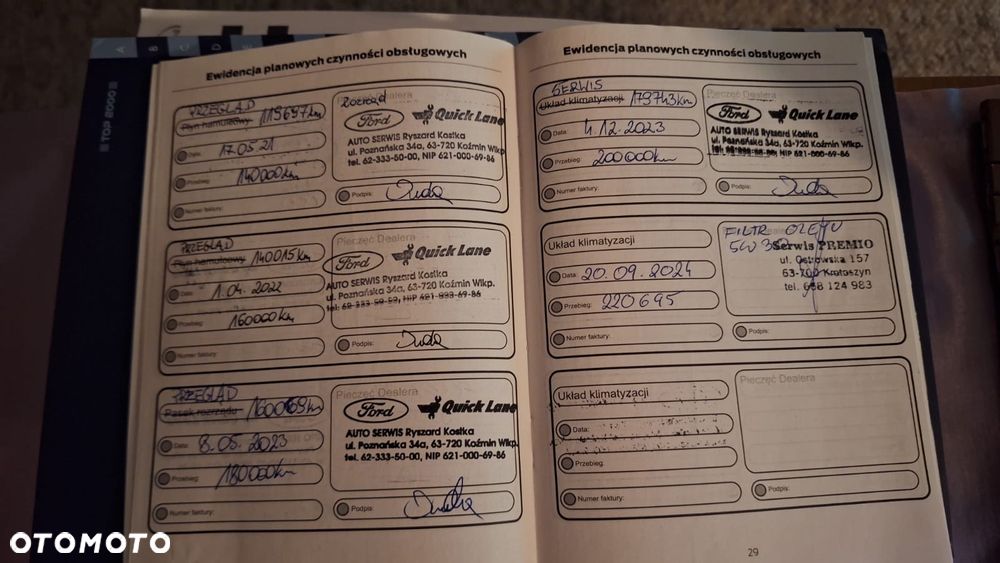 A
B
C
D
TOP 2000
Ewidencja planowych czynności obsługowych
PRZEGLĄD
Płyn hamulcowy 119697km
Data: 17.05 21
Przebieg: 140000km
Numer faktury:
Pieczęć Dealera
Rozrząd
Ford Quick Lane
AUTO SERWIS Ryszard Kostka
ul. Poznańska 34a, 63-720 Koźmin Wlkp.
tel. 62-333-50-00, NIP 621-000-69-86
Podpis: Duda
PRZEGLĄD
Płyn hamulcowy 140015km
Data: 1.04.2022
Przebieg: 160000km
Numer faktury:
Pieczęć Dealera
Ford Quick Lane
AUTO SERWIS Ryszard Kostka
ul. Poznańska 34a, 63-720 Koźmin Wlkp.
tel. 62-333-50-00, NIP 621-000-69-86
Podpis: Duda
PRZEGLĄD
Pasek rozrządu 160069km
Data: 8.05.2023
Przebieg: 180000km
Numer faktury:
Pieczęć Dealera
Ford Quick Lane
AUTO SERWIS Ryszard Kostka
ul. Poznańska 34a, 63-720 Koźmin Wlkp.
tel. 62-333-50-00, NIP 621-000-69-86
Podpis: Duda
Ewidencja planowych czynności obsługowych
SERWIS
Układ klimatyzacji 179743km
Data: 4.12.2023
Przebieg: 200000km
Numer faktury:
Pieczęć Dealera
Ford Quick Lane
AUTO SERWIS Ryszard Kostka
ul. Poznańska 34a, 63-720 Koźmin Wlkp.
tel. 62-333-50-00, NIP 621-000-69-86
Podpis: Duda
Układ klimatyzacji
Data: 20.09.2024
Przebieg: 220695
Numer faktury:
FILTR OLEJU
5W30
Serwis PREMIO
ul. Ostrowska 157
63-700 Krotoszyn
tel. 668 124 983
Podpis:
Układ klimatyzacji
Data:
Przebieg:
Numer faktury:
Pieczęć Dealera
Podpis:
29
OTOMOTO